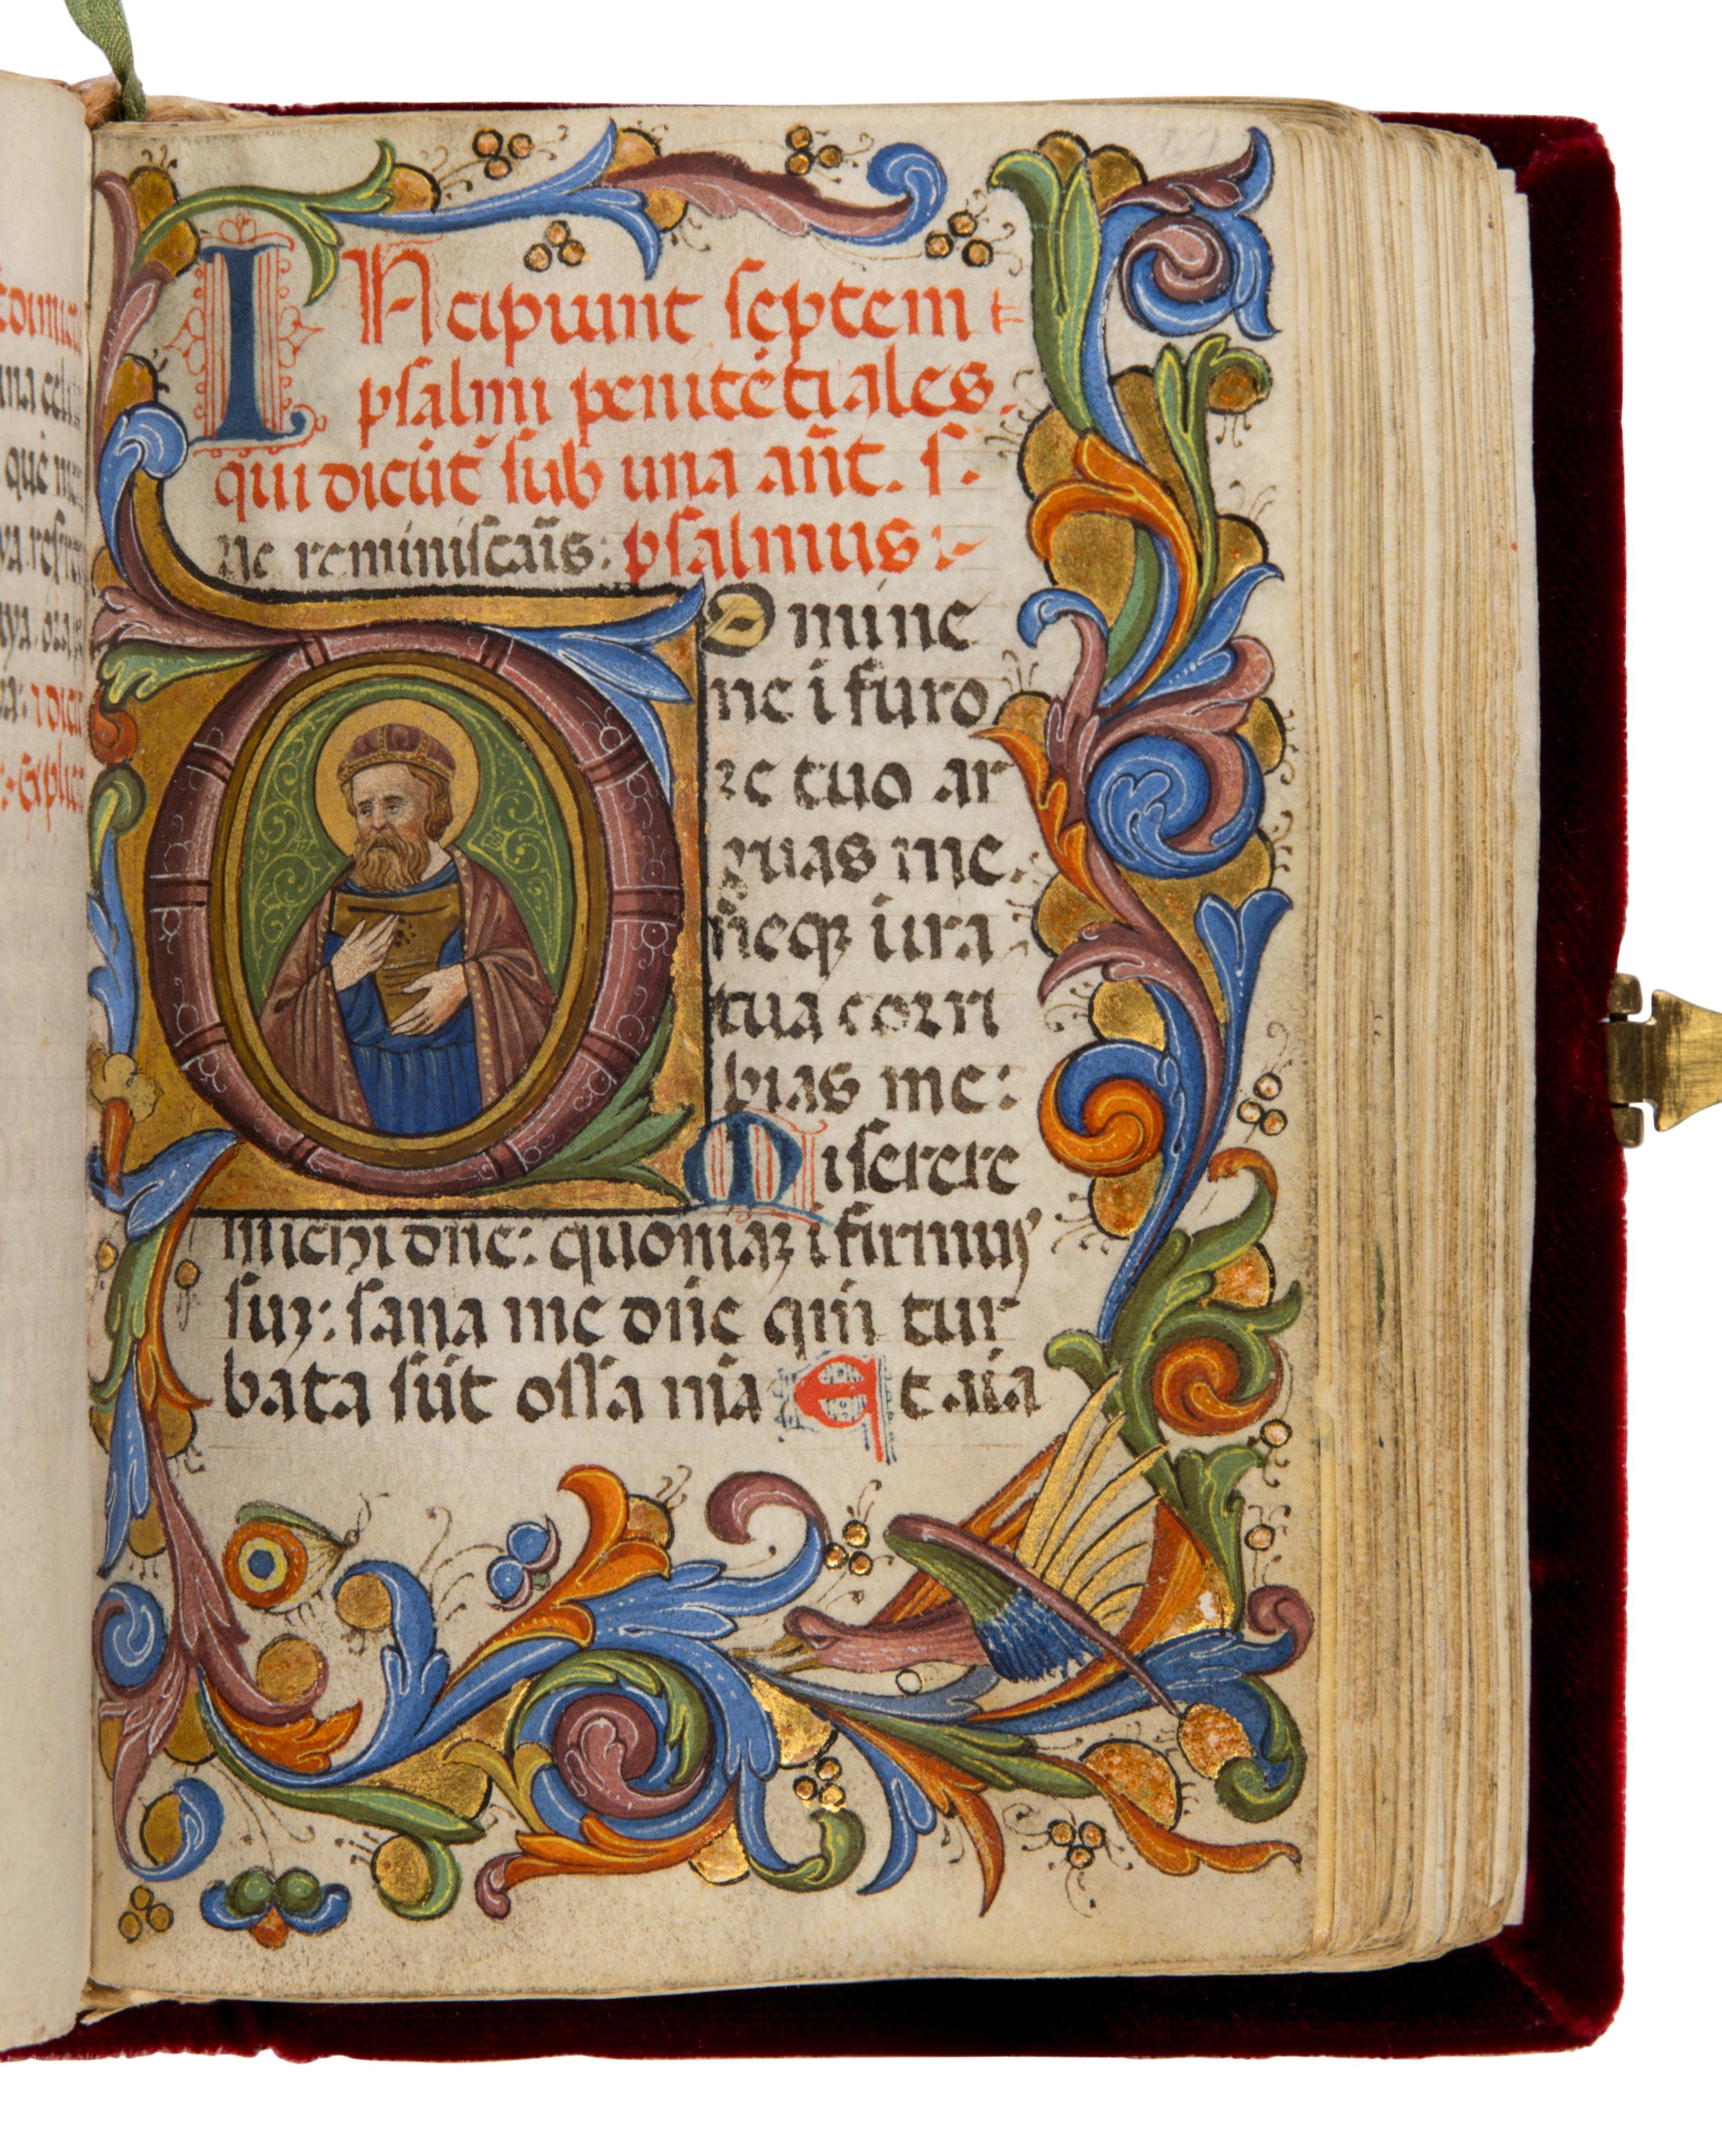 INcipiunt septem
psalmi penitẽtiales.
qui dicũt̃ sub una añt. s.
Ne reminiscaĩs: psalmus:
Domine
ne ĩ furo
re tuo ar
guas me.
neqȝ in ira
tua corri
pias me:
Miserere
michi dñe: quoniaȝ ĩfirmus
suȝ: sana me dñe qm̃ tur
bata sũt ossa mĩa Et aĩa